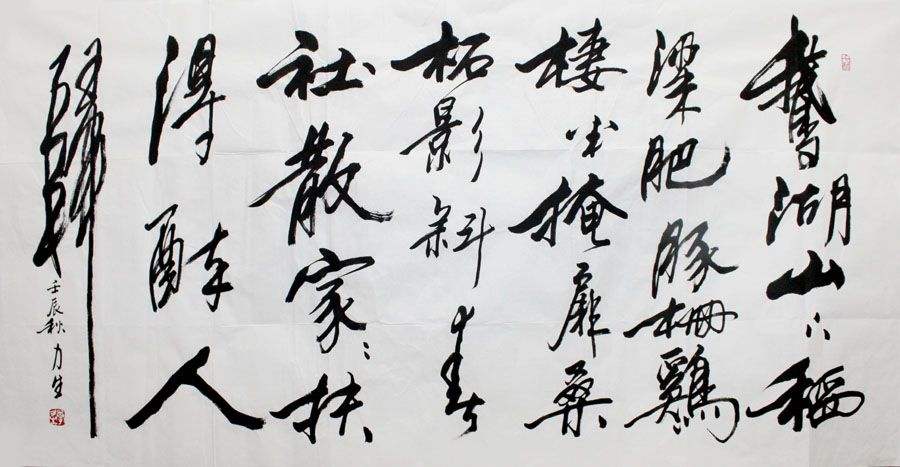 鵞湖山下稻
梁肥豚栅鷄
棲半掩扉桑
柘影斜春
社散家〻扶
得醉人
歸
壬辰秋 力生